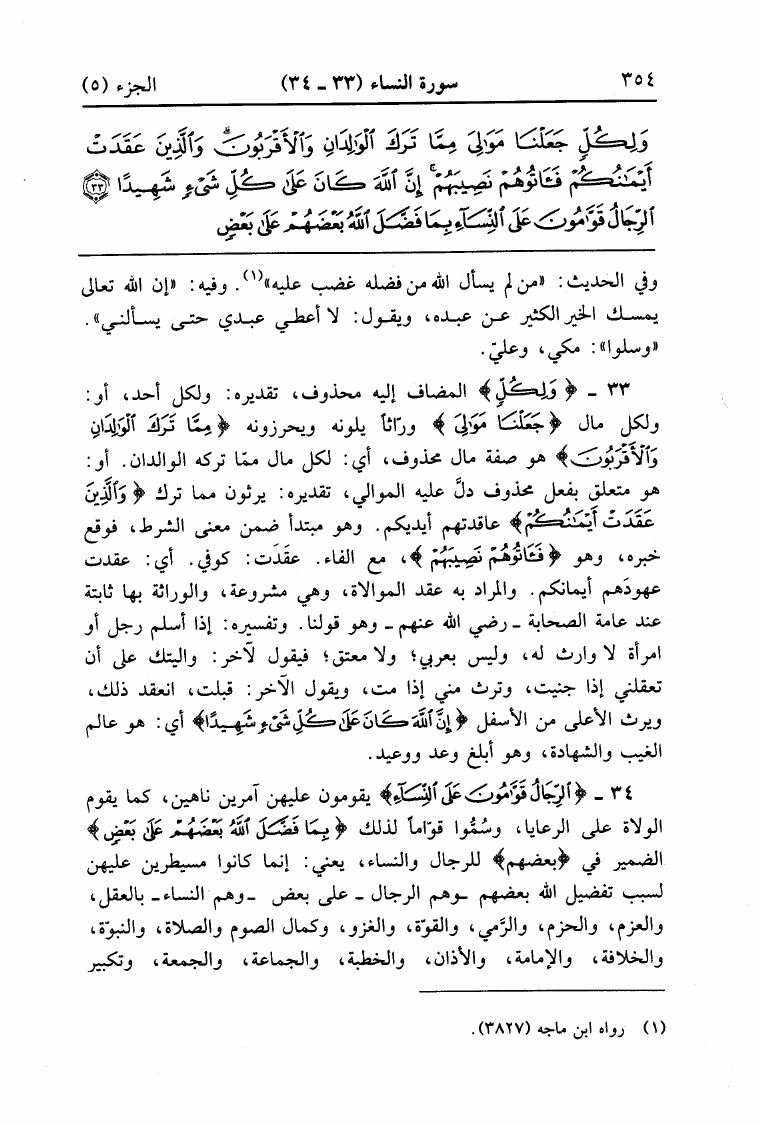 ٣٥٤ سورة النساء (٣٣ - ٣٤) الجزء (٥)
وَلِكُلٍّ جَعَلْنَا مَوَالِيَ مِمَّا تَرَكَ الْوَالِدَانِ وَالْأَقْرَبُونَ ۚ وَالَّذِينَ عَقَدَتْ
أَيْمَانُكُمْ فَآتُوهُمْ نَصِيبَهُمْ ۚ إِنَّ اللَّهَ كَانَ عَلَىٰ كُلِّ شَيْءٍ شَهِيدًا ٣٣
الرِّجَالُ قَوَّامُونَ عَلَى النِّسَاءِ بِمَا فَضَّلَ اللَّهُ بَعْضَهُمْ عَلَىٰ بَعْضٍ
وفي الحديث: «من لم يسأل الله من فضله غضب عليه»(١). وفيه: «إن الله تعالى
يمسك الخير الكثير عن عبده، ويقول: لا أعطي عبدي حتى يسألني».
«وسلوا»: مكي، وعليّ.
٣٣ - ﴿وَلِكُلٍّ﴾ المضاف إليه محذوف، تقديره: ولكل أحد، أو:
ولكل مال ﴿جَعَلْنَا مَوَالِيَ﴾ ورّاثاً يلونه ويحرزونه ﴿مِمَّا تَرَكَ الْوَالِدَانِ
وَالْأَقْرَبُونَ﴾ هو صفة مال محذوف، أي: لكل مال ممّا تركه الوالدان. أو:
هو متعلق بفعل محذوف دلَّ عليه الموالي، تقديره: يرثون مما ترك ﴿وَالَّذِينَ
عَقَدَتْ أَيْمَانُكُمْ﴾ عاقدتهم أيديكم. وهو مبتدأ ضمن معنى الشرط، فوقع
خبره، وهو ﴿فَآتُوهُمْ نَصِيبَهُمْ﴾، مع الفاء. عقَدَت: كوفي. أي: عقدت
عهودَهم أيمانكم. والمراد به عقد الموالاة، وهي مشروعة، والوراثة بها ثابتة
عند عامة الصحابة - رضي الله عنهم - وهو قولنا. وتفسيره: إذا أسلم رجل أو
امرأة لا وارث له، وليس بعربي؛ ولا معتق؛ فيقول لآخر: واليتك على أن
تعقلني إذا جنيت، وترث مني إذا مت، ويقول الآخر: قبلت، انعقد ذلك،
ويرث الأعلى من الأسفل ﴿إِنَّ اللَّهَ كَانَ عَلَىٰ كُلِّ شَيْءٍ شَهِيدًا﴾ أي: هو عالم
الغيب والشهادة، وهو أبلغ وعد ووعيد.
٣٤ - ﴿الرِّجَالُ قَوَّامُونَ عَلَى النِّسَاءِ﴾ يقومون عليهن آمرين ناهين، كما يقوم
الولاة على الرعايا، وسُمُّوا قوّاماً لذلك ﴿بِمَا فَضَّلَ اللَّهُ بَعْضَهُمْ عَلَىٰ بَعْضٍ﴾
الضمير في ﴿بعضهم﴾ للرجال والنساء، يعني: إنما كانوا مسيطرين عليهن
لسبب تفضيل الله بعضهم -وهم الرجال - على بعض -وهم النساء- بالعقل،
والعزم، والحزم، والرَّمي، والقوّة، والغزو، وكمال الصوم والصلاة، والنبوّة،
والخلافة، والإمامة، والأذان، والخطبة، والجماعة، والجمعة، وتكبير
(١) رواه ابن ماجه (٣٨٢٧).